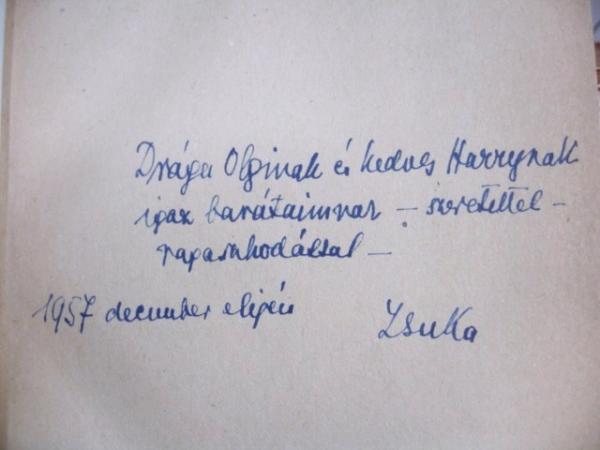 Drága Olginak és kedves Harrynak
igaz barátaimnak – szeretettel –
ragaszkodással –
1957 december elején
Zsuka